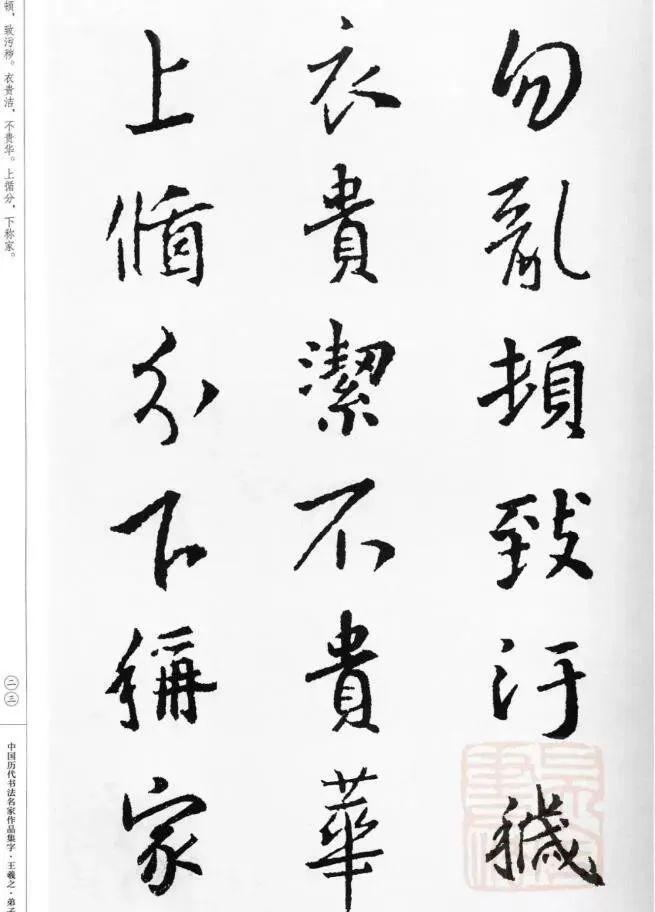 勿亂頓致汙穢
衣貴潔不貴華
上循分下稱家
顿，致污秽。衣贵洁，不贵华。上循分，下称家。
二三
中国历代书法名家作品集字·王羲之·弟子